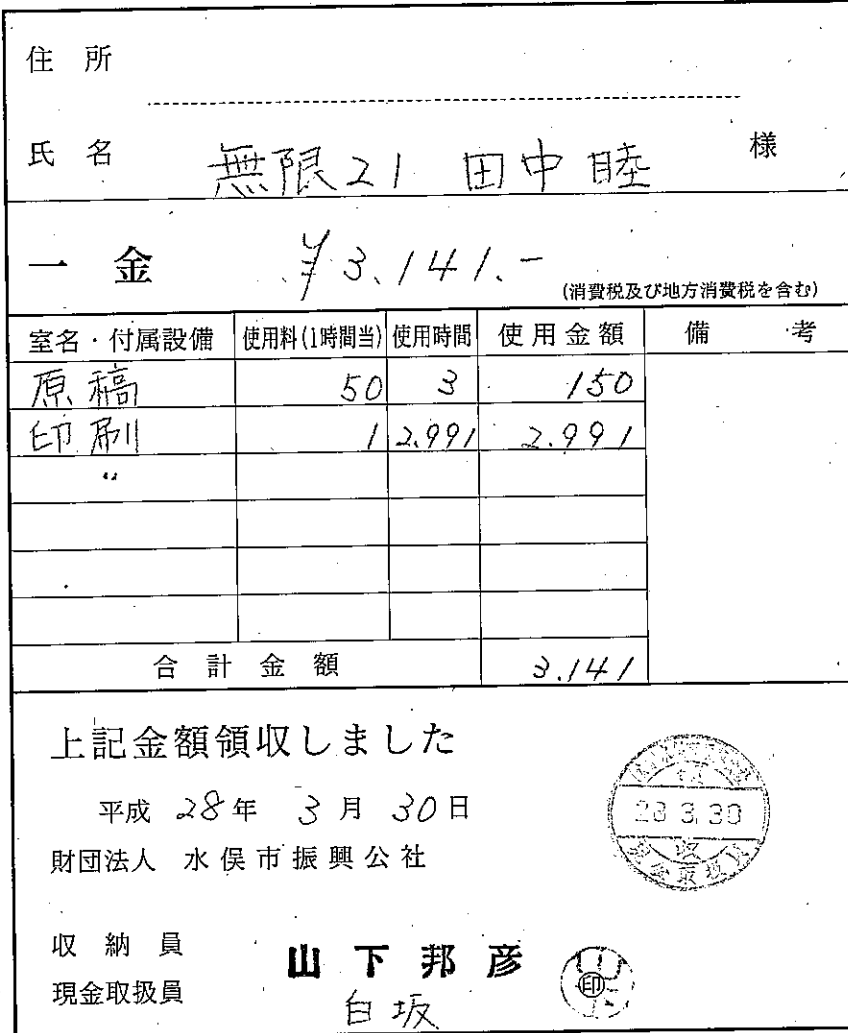 住所
氏名 無限21 田中睦 様
一金 ¥3.141.-
(消費税及び地方消費税を含む)
室名・付属設備 使用料(1時間当) 使用時間 使用金額 備考
原稿 50 3 150
印刷 1 2.991 2.991
〃
合計金額 3.141
上記金額領収しました
平成 28年 3月 30日
28.3.30
財団法人 水俣市振興公社
収納員 山下邦彦 印
現金取扱員 白坂